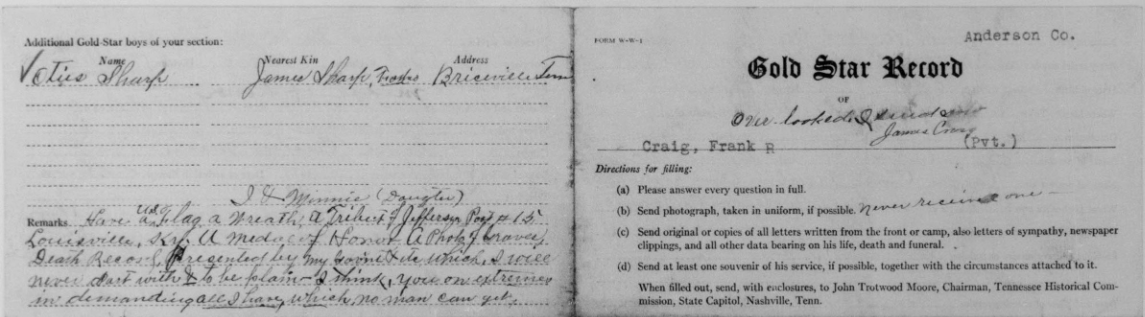 Additional Gold-Star boys of your section:
Name Nearest Kin Address
Otis Sharp James Sharp, Briceville Tenn
I & Minnie (Daughter)
Remarks Have Flag a Wreath, a Tribute of Jefferson Post #15
Louisville, Ky. A Medal of Honor A Photo of Grave,
Death Record, Presented by my Govmt etc which I will
never part with & to be plain I think, you are extreme
in demanding all I have, which no man can get.
FORM W-W-1
Anderson Co.
Gold Star Record
OF
Over looked & send
James Craig
Craig, Frank R (Pvt.)
Directions for filling:
(a) Please answer every question in full.
(b) Send photograph, taken in uniform, if possible. Never received one
(c) Send original or copies of all letters written from the front or camp, also letters of sympathy, newspaper
clippings, and all other data bearing on his life, death and funeral.
(d) Send at least one souvenir of his service, if possible, together with the circumstances attached to it.
When filled out, send, with enclosures, to John Trotwood Moore, Chairman, Tennessee Historical Com-
mission, State Capitol, Nashville, Tenn.